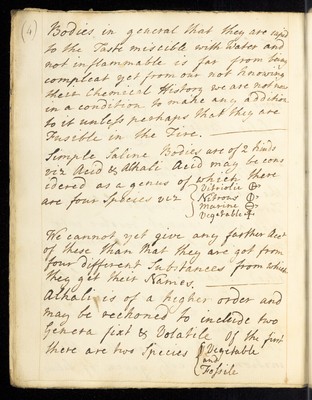 (4)
Bodies in general that they are rapid
to the Taste miscible with Water and
not inflammable is far from being
compleat yet from our not knowing
their Chemical History we are not now
in a condition to make any addition
to it unless perhaps that they are
Fusible in the Fire.
Simple Saline Bodies are of 2 kinds
viz Acid & Alkali Acid may be cons
idered as a genus of which there
are four Species viz { Vitriolic
Nitrous
Murine
Vegetable
We cannot yet give any farther Acct
of these than that they are got from
four different Substances from which
they get their Names.
Alkali is of a higher order and
may be reckoned to include two
Genera fixt & Volatile Of the first
there are two Species { Vegetable
and
Fossile